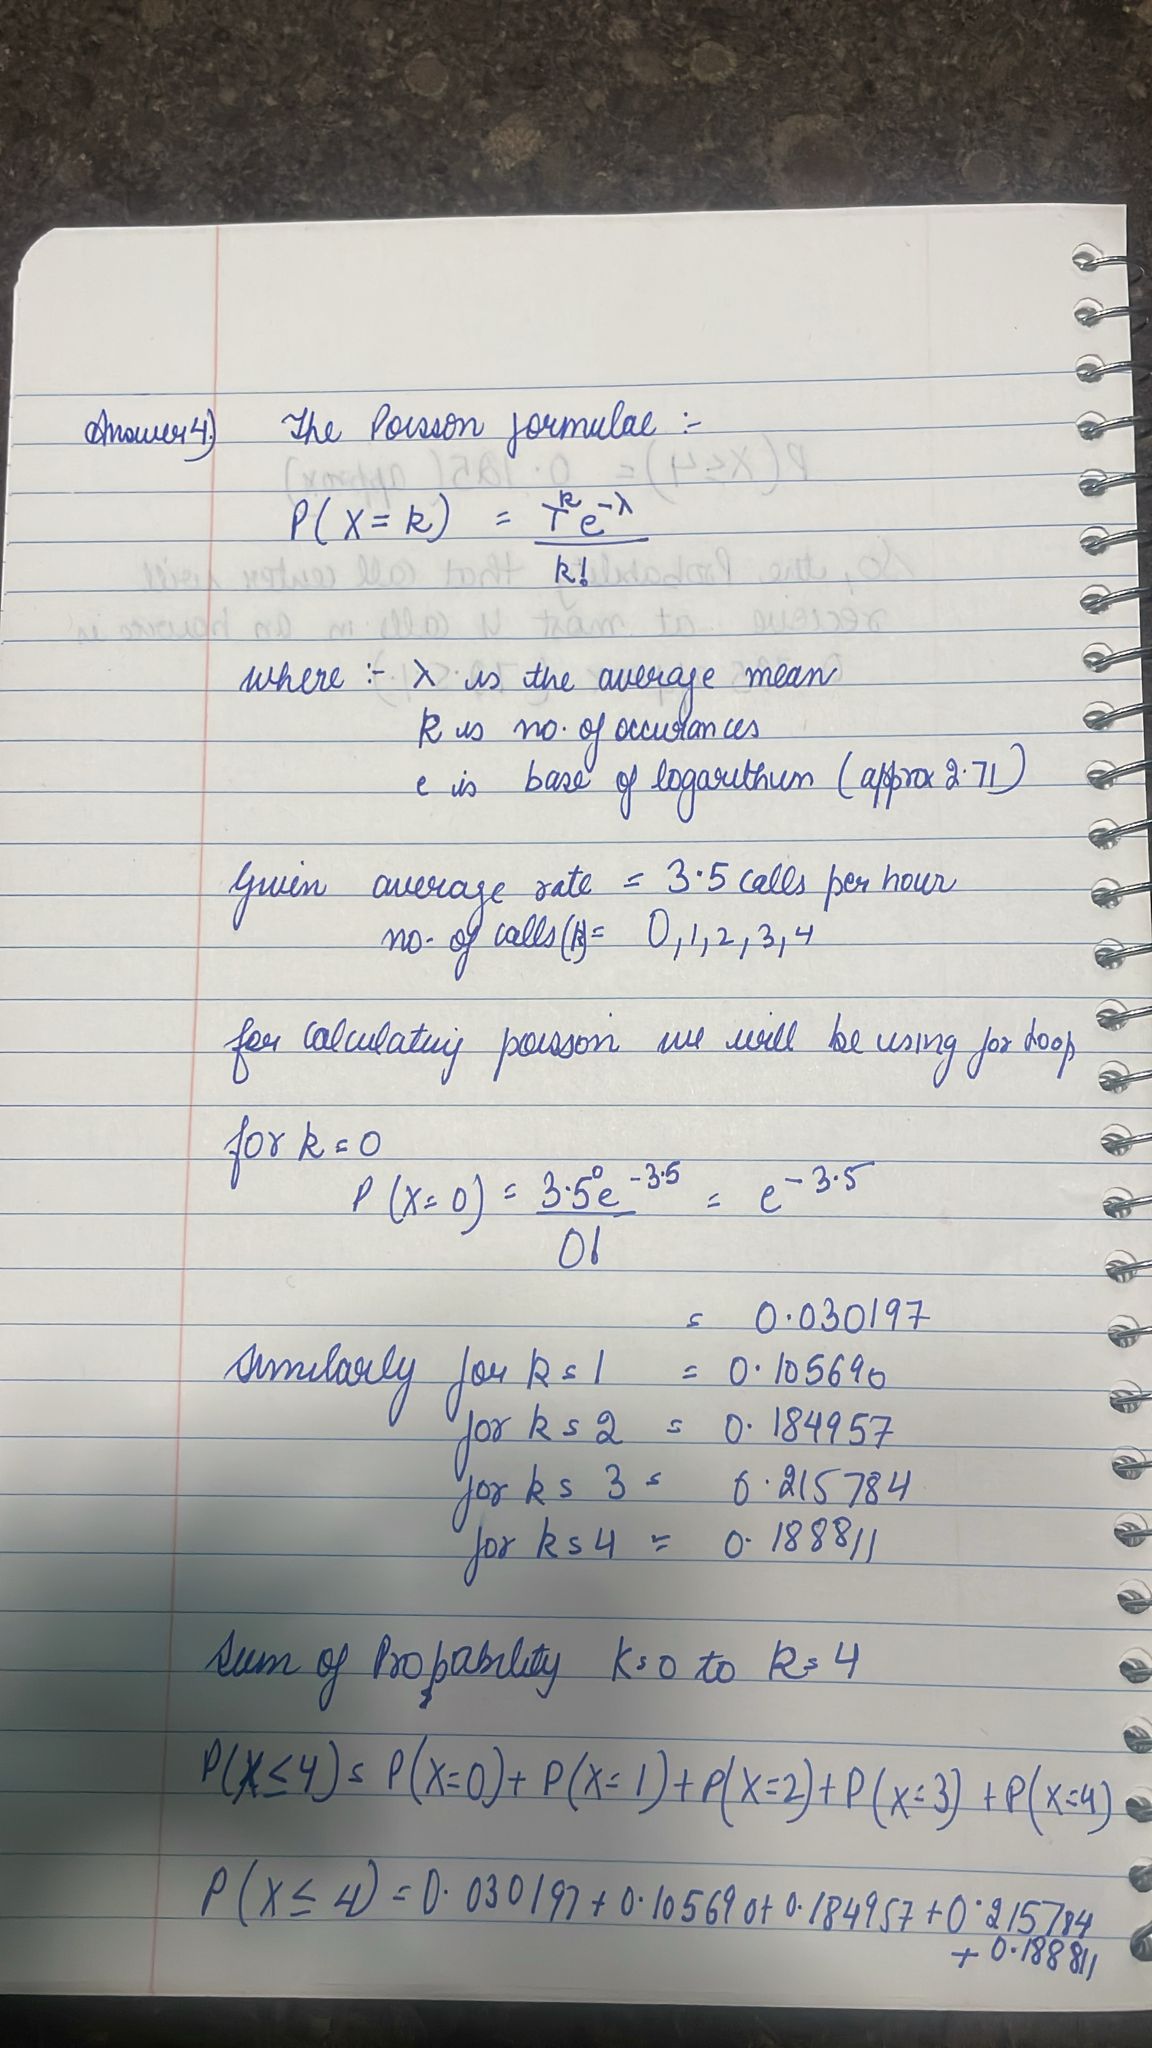 Answer 4) The Poisson formulae :-
P(X=k) = T^k e^-λ / k!
where :- λ is the average mean
k is no. of occurances
e is base of logarithum (approx 2.71)
Given average rate = 3.5 calls per hour
no. of calls(k)= 0,1,2,3,4
for calculating poisson we will be using for loop
for k=0
P(X=0) = 3.5^0 e^-3.5 / 0! = e^-3.5
= 0.030197
Similarly for k=1 = 0.105690
for k=2 = 0.184957
for k=3 = 0.215784
for k=4 = 0.188811
Sum of Propability k=0 to k=4
P(X≤4) = P(X=0)+ P(X=1)+P(X=2)+P(X=3)+P(X=4)
P(X≤4) = 0.030197+0.105690+0.184957+0.215784
+ 0.188811